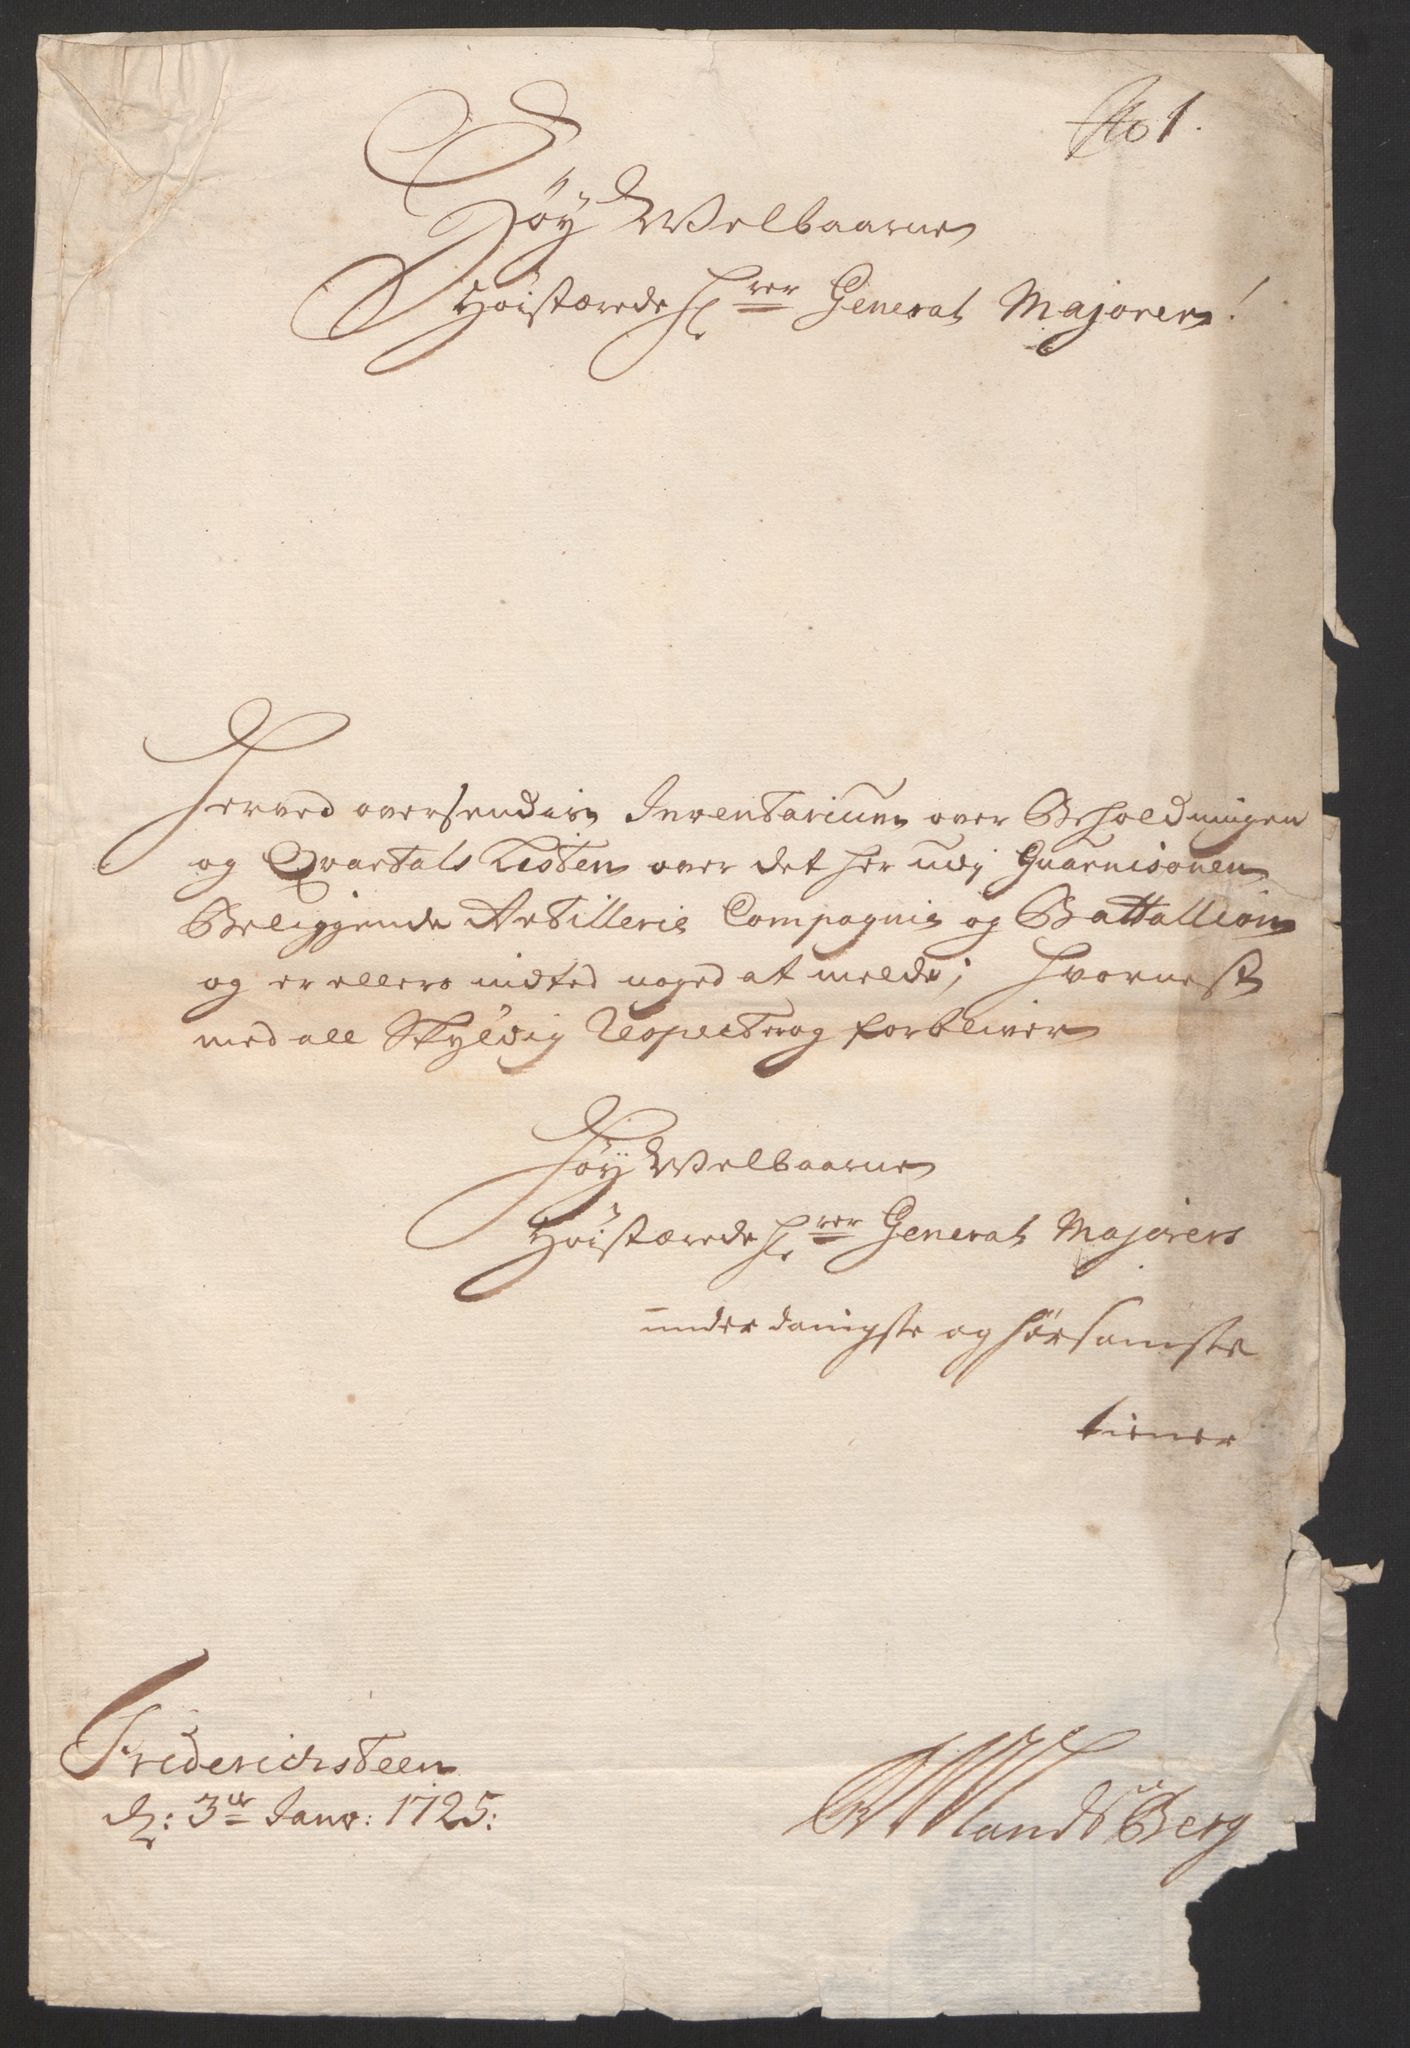 No 1.
Høy Welbaarne
Høistærede Hrer General Majorer!
Herved oversendis Inventarium over Beholdningen
og Qvartals Listen over det her udj Guarnisonen
Beliggende Artillerie Compagnie og Battallion
og er ellers indted noged at melde; hvornest
med all Skyldig Respect forbliver
Høy Welbaarne
Høistærede Hrer General Majorers
underdanigste og hørsamste
tiener
Friderichsteen
d: 3te Janv: 1725:
LandsBerg